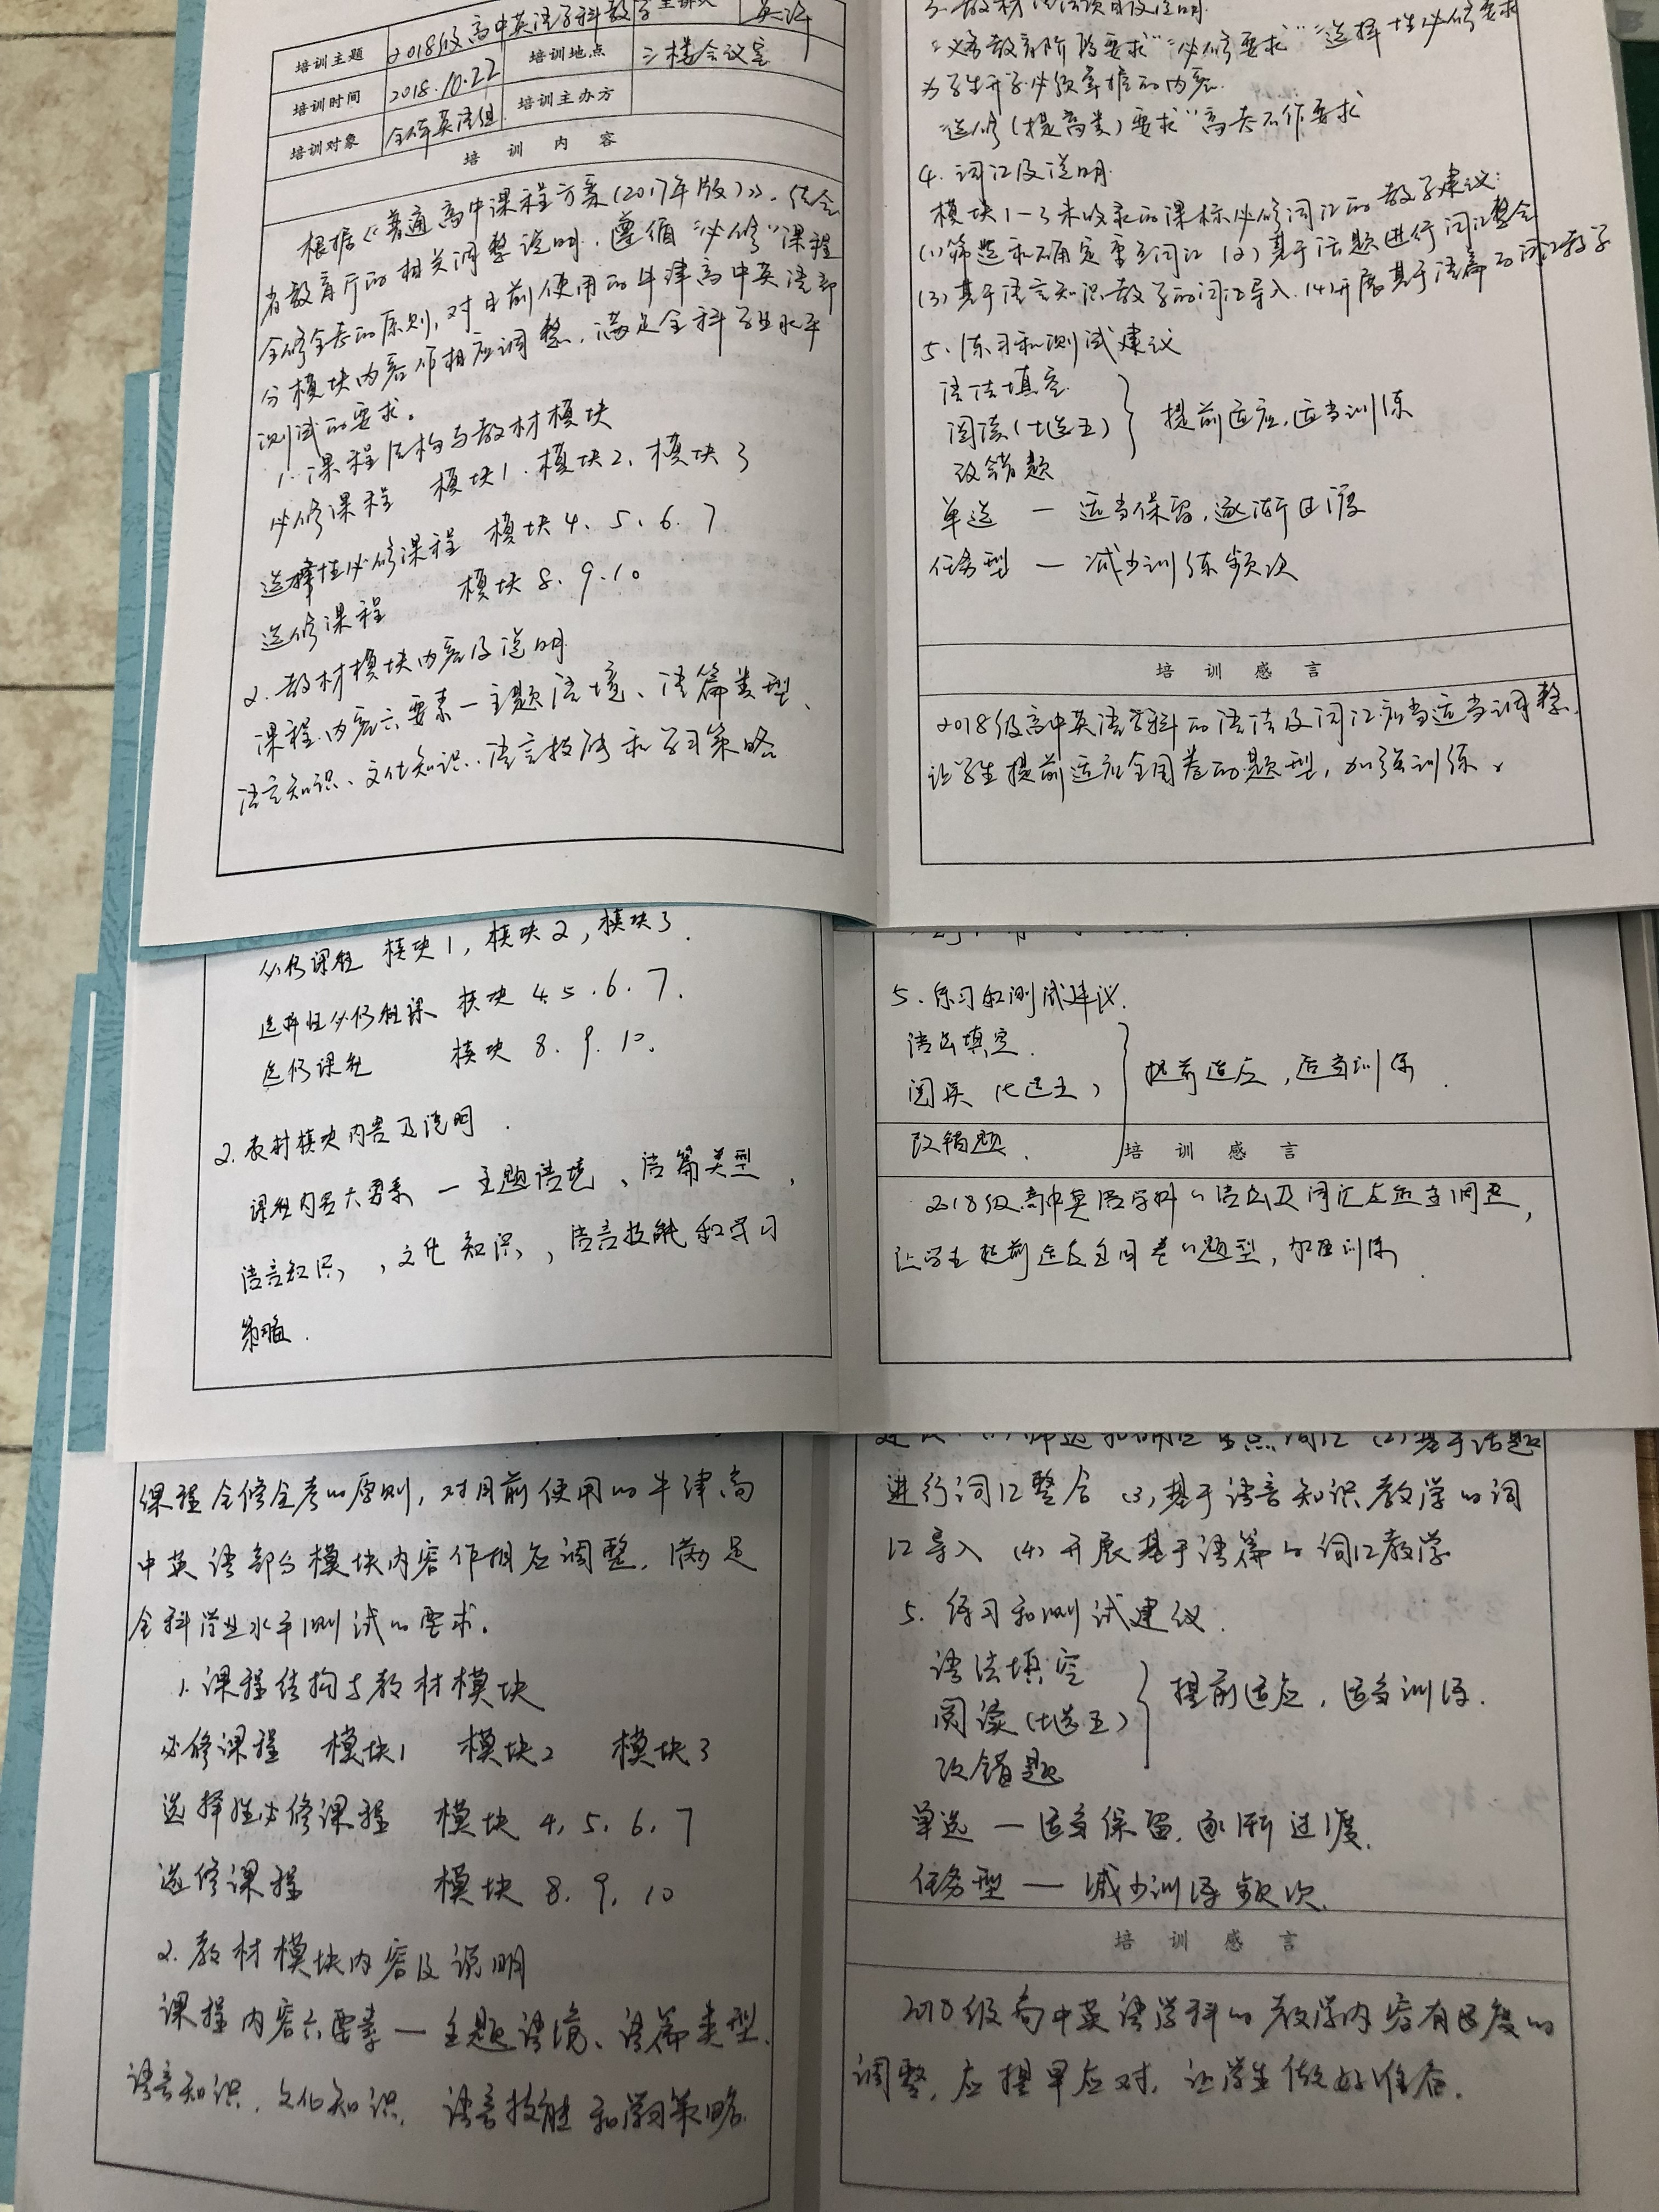 培训主题 2018级高中英语学科教学 主讲人
培训时间 2018.10.22 培训地点 三楼会议室
培训对象 全体英语组 培训主办方
培训内容
根据《普通高中课程方案(2017年版)》,结合
省教育厅的相关调整说明,遵循"必修"课程
全修全考的原则,对目前使用的牛津高中英语部
分模块内容作相应调整,满足全科学业水平
测试的要求。
1.课程结构与教材模块
必修课程 模块1.模块2、模块3
选择性必修课程 模块4、5、6、7
选修课程 模块8、9、10
2.教材模块内容及说明
课程内容六要素—主题语境、语篇类型、
语言知识、文化知识、语言技能和学习策略
3.教材语法项目及说明
"义务教育阶段要求""必修要求""选择性必修要求"
为学生开学必须掌握的内容
"选修(提高类)要求"高考不作要求
4.词汇及说明
模块1-3未收录的课标必修词汇的教学建议:
(1)筛选和确定重点词汇 (2)基于话题进行词汇整合
(3)基于语言知识教学的词汇导入.(4)开展基于语篇的词汇教学
5.练习和测试建议
语法填空
阅读(七选五) 提前适应,适当训练
改错题
单选 — 适当保留,逐渐过渡
任务型 — 减少训练频次
培训感言
2018级高中英语学科的语法及词汇应当适当调整,
让学生提前适应全国卷的题型,加强训练。
必修课程 模块1,模块2,模块3.
选择性必修程课 模块4.5.6.7.
选修课程 模块8.9.10.
2.教材模块内容及说明.
课程内容六要素—主题语境、语篇类型,
语言知识,文化知识,语言技能和学习
策略.
5.练习和测试建议.
语法填空.
阅读(七选五) 提前适应,适当训练.
改错题.
培训感言
2018级高中英语学科的语法及词汇应适当调整,
让学生提前适应全国卷的题型,加强训练.
课程全修全考的原则,对目前使用的牛津高
中英语部分模块内容作相应调整,满足
全科学业水平测试的要求。
1.课程结构与教材模块
必修课程 模块1 模块2 模块3
选择性必修课程 模块4,5,6,7
选修课程 模块8,9,10
2.教材模块内容及说明
课程内容六要素—主题语境、语篇类型、
语言知识,文化知识,语言技能和学习策略
建议:(1)筛选和确定重点词汇 (2)基于话题
进行词汇整合 (3)基于语言知识教学的词
汇导入 (4)开展基于语篇的词汇教学
5.练习和测试建议.
语法填空
阅读(七选五) 提前适应,适当训练.
改错题
单选—适当保留,逐渐过渡.
任务型—减少训练频次.
培训感言
2018级高中英语学科的教学内容有的
调整,应提早应对,让学生做好准备.